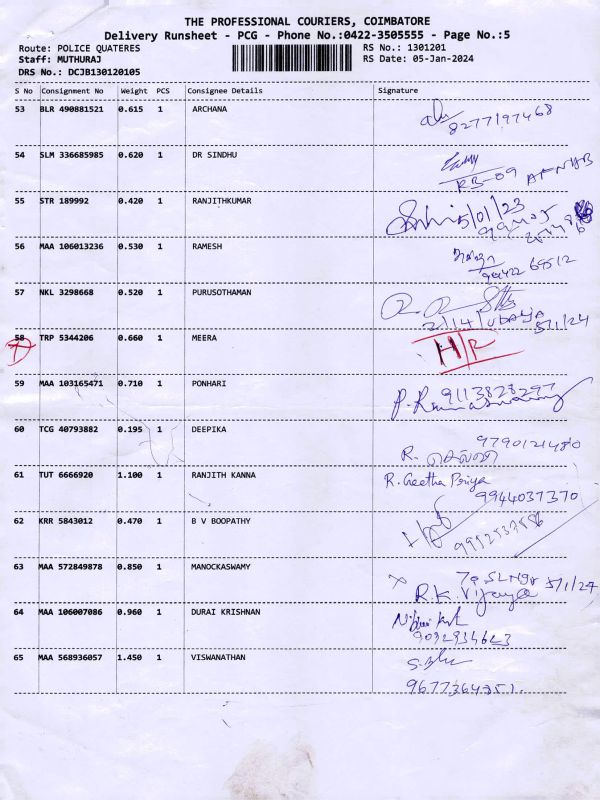 THE PROFESSIONAL COURIERS, COIMBATORE
Delivery Runsheet - PCG - Phone No.:0422-3505555 - Page No.:5
Route: POLICE QUATERES RS No.: 1301201
Staff: MUTHURAJ RS Date: 05-Jan-2024
DRS No.: DCJB130120105
S No Consignment No Weight PCS Consignee Details Signature
53 BLR 490881521 0.615 1 ARCHANA
8277197468
54 SLM 336685985 0.620 1 DR SINDHU
RB-09 ARNAB
55 STR 189992 0.420 1 RANJITHKUMAR
5/01/23
56 MAA 106013236 0.530 1 RAMESH
57 NKL 3298668 0.520 1 PURUSOTHAMAN
2/14/UDAYA 5/1/24
58 TRP 5344206 0.660 1 MEERA H/R
59 MAA 103165471 0.710 1 PONHARI 9113828297
60 TCG 40793882 0.195 1 DEEPIKA
9790121480
R. செல்வி
61 TUT 6666920 1.100 1 RANJITH KANNA R. Geetha Priya
9944037370
62 KRR 5843012 0.470 1 B V BOOPATHY
63 MAA 572849878 0.850 1 MANOCKASWAMY
5/1/24
R.K. Vijaya
64 MAA 106007086 0.960 1 DURAI KRISHNAN
9092934623
65 MAA 568936057 1.450 1 VISWANATHAN
9677364351.